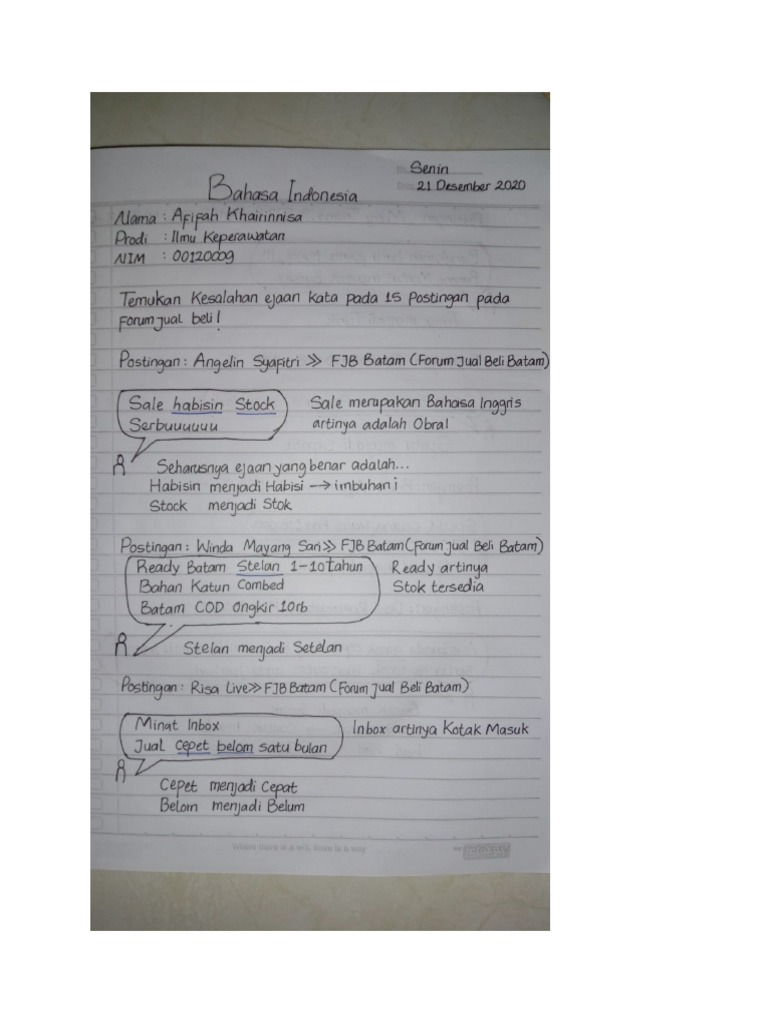 Senin
21 Desember 2020
Bahasa Indonesia
Nama : Afifah Khairinnisa
Prodi : Ilmu Keperawatan
NIM : 00120009
Temukan Kesalahan ejaan kata pada 15 Postingan pada
Forum jual beli!
Postingan : Angelin Syafitri >> FJB Batam (Forum Jual Beli Batam)
Sale habisin Stock Sale merupakan Bahasa Inggris
Serbuuuuuu artinya adalah Obral
Seharusnya ejaan yang benar adalah...
Habisin menjadi Habisi → imbuhan i
Stock menjadi Stok
Postingan : Winda Mayang Sari >> FJB Batam (Forum Jual Beli Batam)
Ready Batam Stelan 1-10 tahun Ready artinya
Bahan Katun Combed Stok tersedia
Batam COD Ongkir 10rb
Stelan menjadi Setelan
Postingan : Risa Live >> FJB Batam (Forum Jual Beli Batam)
Minat Inbox Inbox artinya Kotak Masuk
Jual cepet belom satu bulan
Cepet menjadi Cepat
Belom menjadi Belum
Where there is a will, there is a way